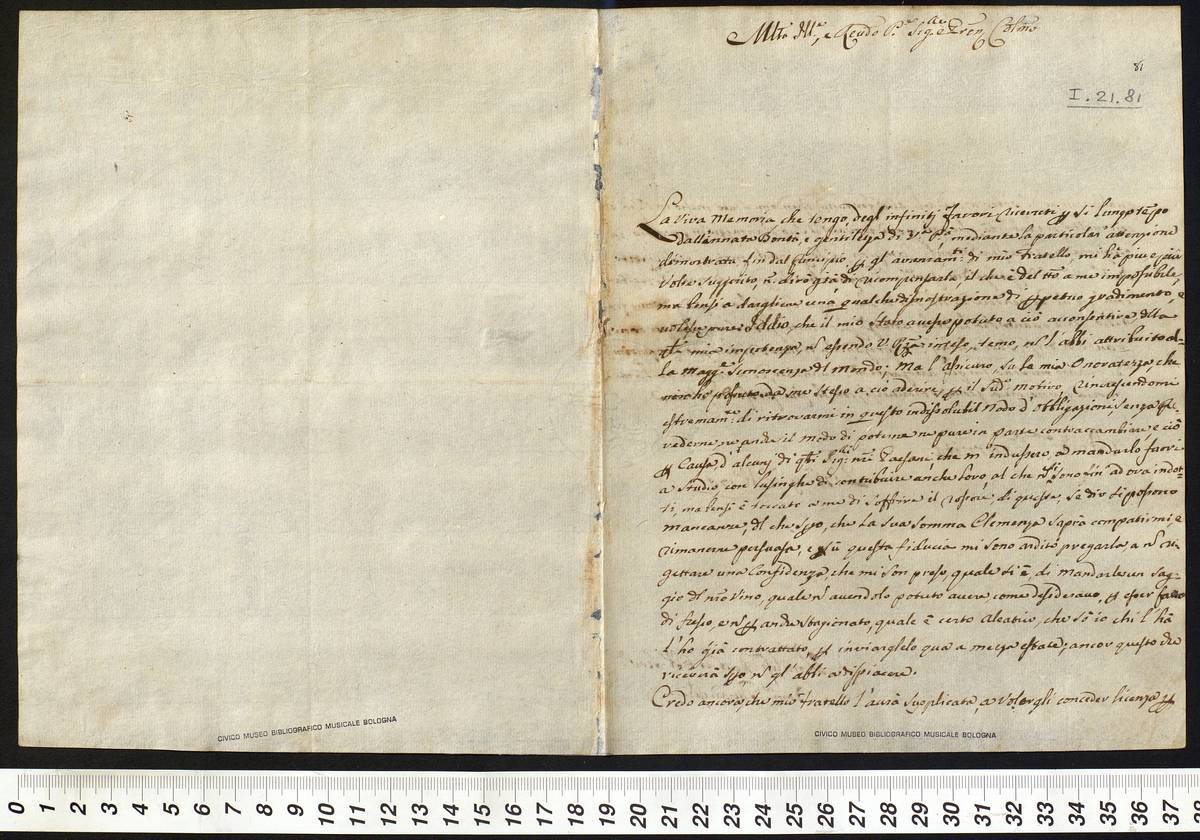 Mlto Ill.e, e Reũdo P.re Sig.e e Prõn Colmo
81
I. 21. 81
La viva memoria che tengo, degl'infiniti favori ricevuti si lungo tẽpo
dall'innata bontà, e gentilezza di V.ra P.tà mediante la particolar attenzione
dimostrata fin dal principio gl'avanzam.ti di mio fratello, mi hà più e più
volte suggerito, ñ dirò già di ricompensarla, il che è del tt̃o a me impossibile,
ma bensi a dargliene una qualche dimostrazione di gradimento, e
volesse pure Iddio, che il mio stato avesse potuto a ciò acconsentire
mia impotenza, ñ essendo inteso, temo, ñ l'abbi attribuito al-
la magg.re sconoscenza del mondo; Ma l'assicuro, sù la mia Onoratezza, che
da me stesso a ciò aderire, il sud.o motivo, rincrescendomi
estremam.te di ritrovarmi in questo indissolubil nodo d'obbligazioni, senza
vederne ne anche il modo di poterne ne pure in parte contraccambiare e ciò
Causa d'alcuni di q̃ti Sig.ri nr̃i Paesani, che m'indussero a mandarlo fuori
a studio con lusinghe di contribuire anche loro, al che ñ si sono sin ad ora indot-
ti, ma bensi è toccato a me di soffrire il rossore di queste, se dir si possono
mancanze, del che spo, che la sua somma Clemenza saprà compatirmi, e
rimanerne persuasa, e sù questa fiducia mi sono ardito pregarla a ñ ri-
gettare una Confidenza, che mi son preso, quale si è, di mandarle un sag-
gio del nr̃o vino, quale ñ avendolo potuto avere come desideravo, esser fatto
di fresco, e ñ anche stagionato, quale è certo Aleatico, che sò io chi l'hà
l'ho già contrattato, inviarglelo quà a mezza estate; ancor questo che
riceverà spo ñ gl'abbi a dispiacere.
Credo ancora, che mio fratello l'avrà supplicata, a volergli conceder licenza
CIVICO MUSEO BIBLIOGRAFICO MUSICALE BOLOGNA
CIVICO MUSEO BIBLIOGRAFICO MUSICALE BOLOGNA
0 1 2 3 4 5 6 7 8 9 10 11 12 13 14 15 16 17 18 19 20 21 22 23 24 25 26 27 28 29 30 31 32 33 34 35 36 37 38